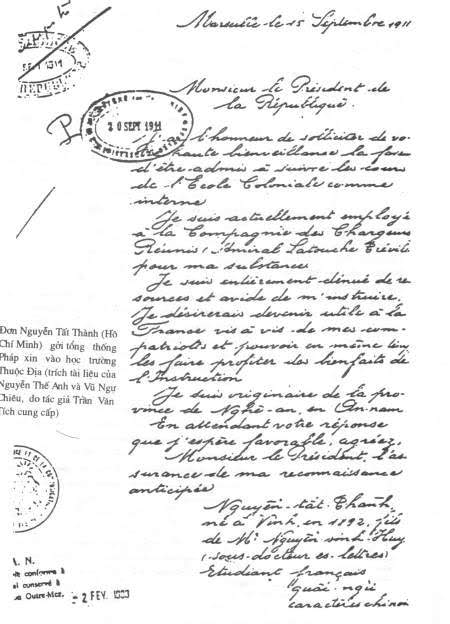 Marseille le 15 Septembre 1911
SEPT 1911
REPUBLIQUE
Monsieur le Président de
la République
20 SEPT 1911
l'honneur de solliciter de vo-
haute bienveillance la faveur
d'être admis à suivre les cours
de l'Ecole Coloniale comme
interne
Je suis actuellement employé
à la Compagnie des Chargeurs
Réunis (Amiral Latouche Tréville
pour ma substance
Je suis entièrement dénué de re
sources et avide de m'instruire.
Je désirerais devenir utile à la
France vis à vis de mes com-
patriotes et pouvoir en même tem
les faire profiter des bienfaits de
l'Instruction
Je suis originaire de la pro-
vince de Nghê-an, en An-nam
En attendant votre réponse
que j'espère favorable, agréez,
Monsieur le Président, l'as
surance de ma reconnaissance
anticipée
Nguyên-tât Thanh,
né à Vinh, en 1892, fils
de Mr. Nguyên sinh Huy
(sous-docteur es-lettres)
Etudiant français
quốc-ngữ
caractères chinoi
Đơn Nguyễn Tất Thành (Hồ
Chí Minh) gởi tổng thống
Pháp xin vào học trường
Thuộc Địa (trích tài liệu của
Nguyễn Thế Anh và Vũ Ngự
Chiêu, do tác giả Trần Văn
Tích cung cấp)
A. N.
conforme à
conservé à
Outre-Mer.
- 2 FEV.